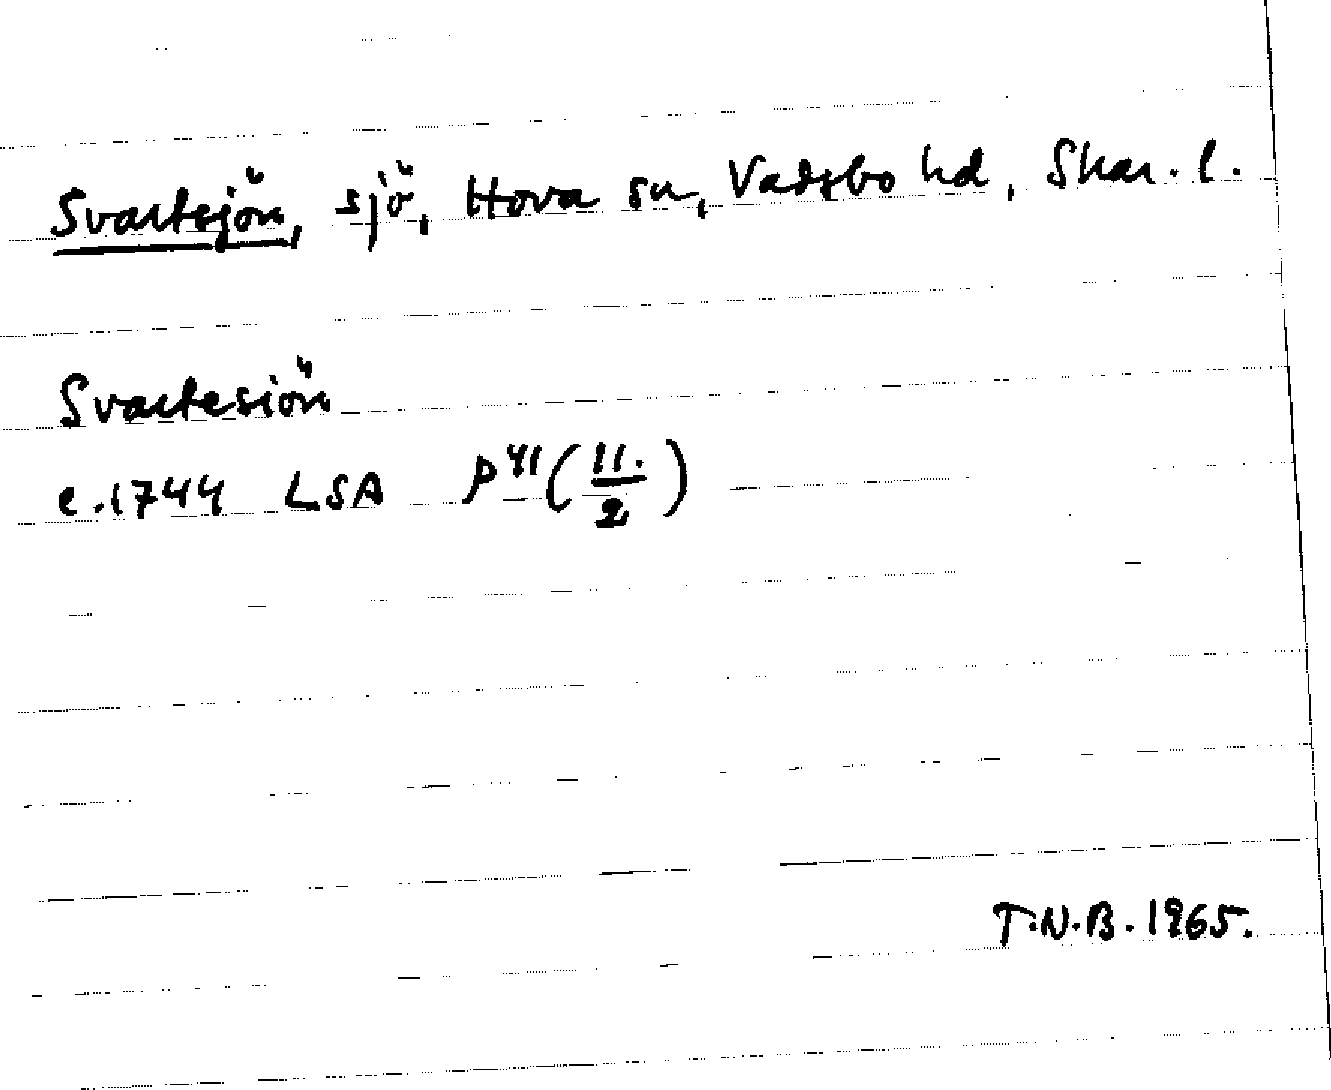 Svartsjön, sjö, Hova sn, Vadsbo hd, Skar. l.
Svartesiön
c. 1744 LSA P 41 (11./2)
T.N.B. 1965.